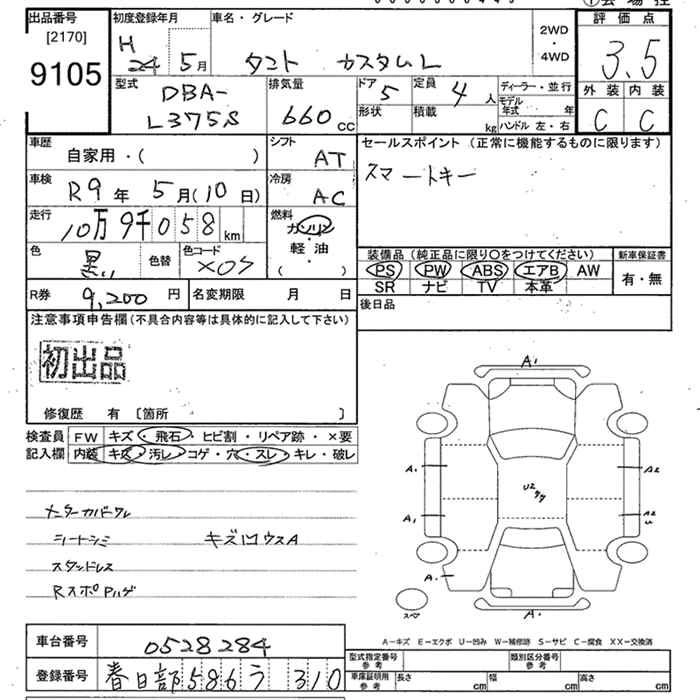 出品番号
[2170]
9105
初度登録年月
H
24 5月
車名・グレード
タント カスタムL
2WD
・
4WD
評価点
3.5
外装 内装
C C
型式
DBA-
L375S
排気量
660 cc
ドア 5
形状
定員 4 人
積載 kg
ディーラー・並行
モデル年式 年
ハンドル 左・右
車歴
自家用・( )
シフト
AT
セールスポイント (正常に機能するものに限ります)
スマートキー
車検
R9年 5月(10日)
冷房
AC
走行
10万9千058km
燃料
ガソリン
・
軽油
( )
色 黒い
色替
色コード X07
装備品 (純正品に限り○をつけてください)
PS PW ABS エアB AW
SR ナビ TV 本革
新車保証書
有・無
R券 9,200 円
名変期限 月 日
後日品
注意事項申告欄(不具合内容等は具体的に記入して下さい)
初出品
修復歴 有 〔箇所 〕
検査員
記入欄
FW キズ・飛石・ヒビ割・リペア跡・×要
内装 キズ・汚レ・コゲ・穴・スレ・キレ・破レ
メーターカバーワレ
シートシミ キズ凹ウスA
スタッドレス
RスポPハゲ
A1
A1
A1
A2
A2
U
U2
A1
A1
スペア
A-キズ E-エクボ U-凹み W-補修跡 S-サビ C-腐食 XX-交換済
車台番号 0528284
登録番号 春日部 586 う 310
型式指定番号
参考
類別区分番号
参考
車庫証明用
参考
長さ cm
幅 cm
高さ cm